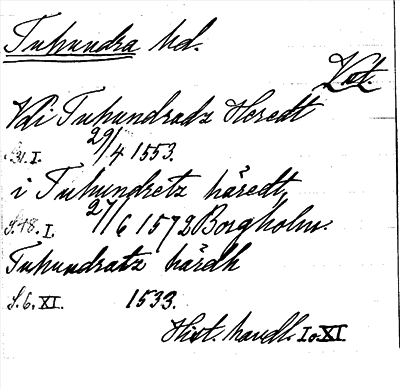 Tuhundra hd.
Vst.
Vdi Tuhundradz Heredt
S. 31. I. 29/4 1553.
i Tuhundretz häredt,
S. 48. I. 27/6 1572 Borgholm.
Tuhundratz härdh
S. 6. XI. 1533.
Hist. handl. I o. XI.